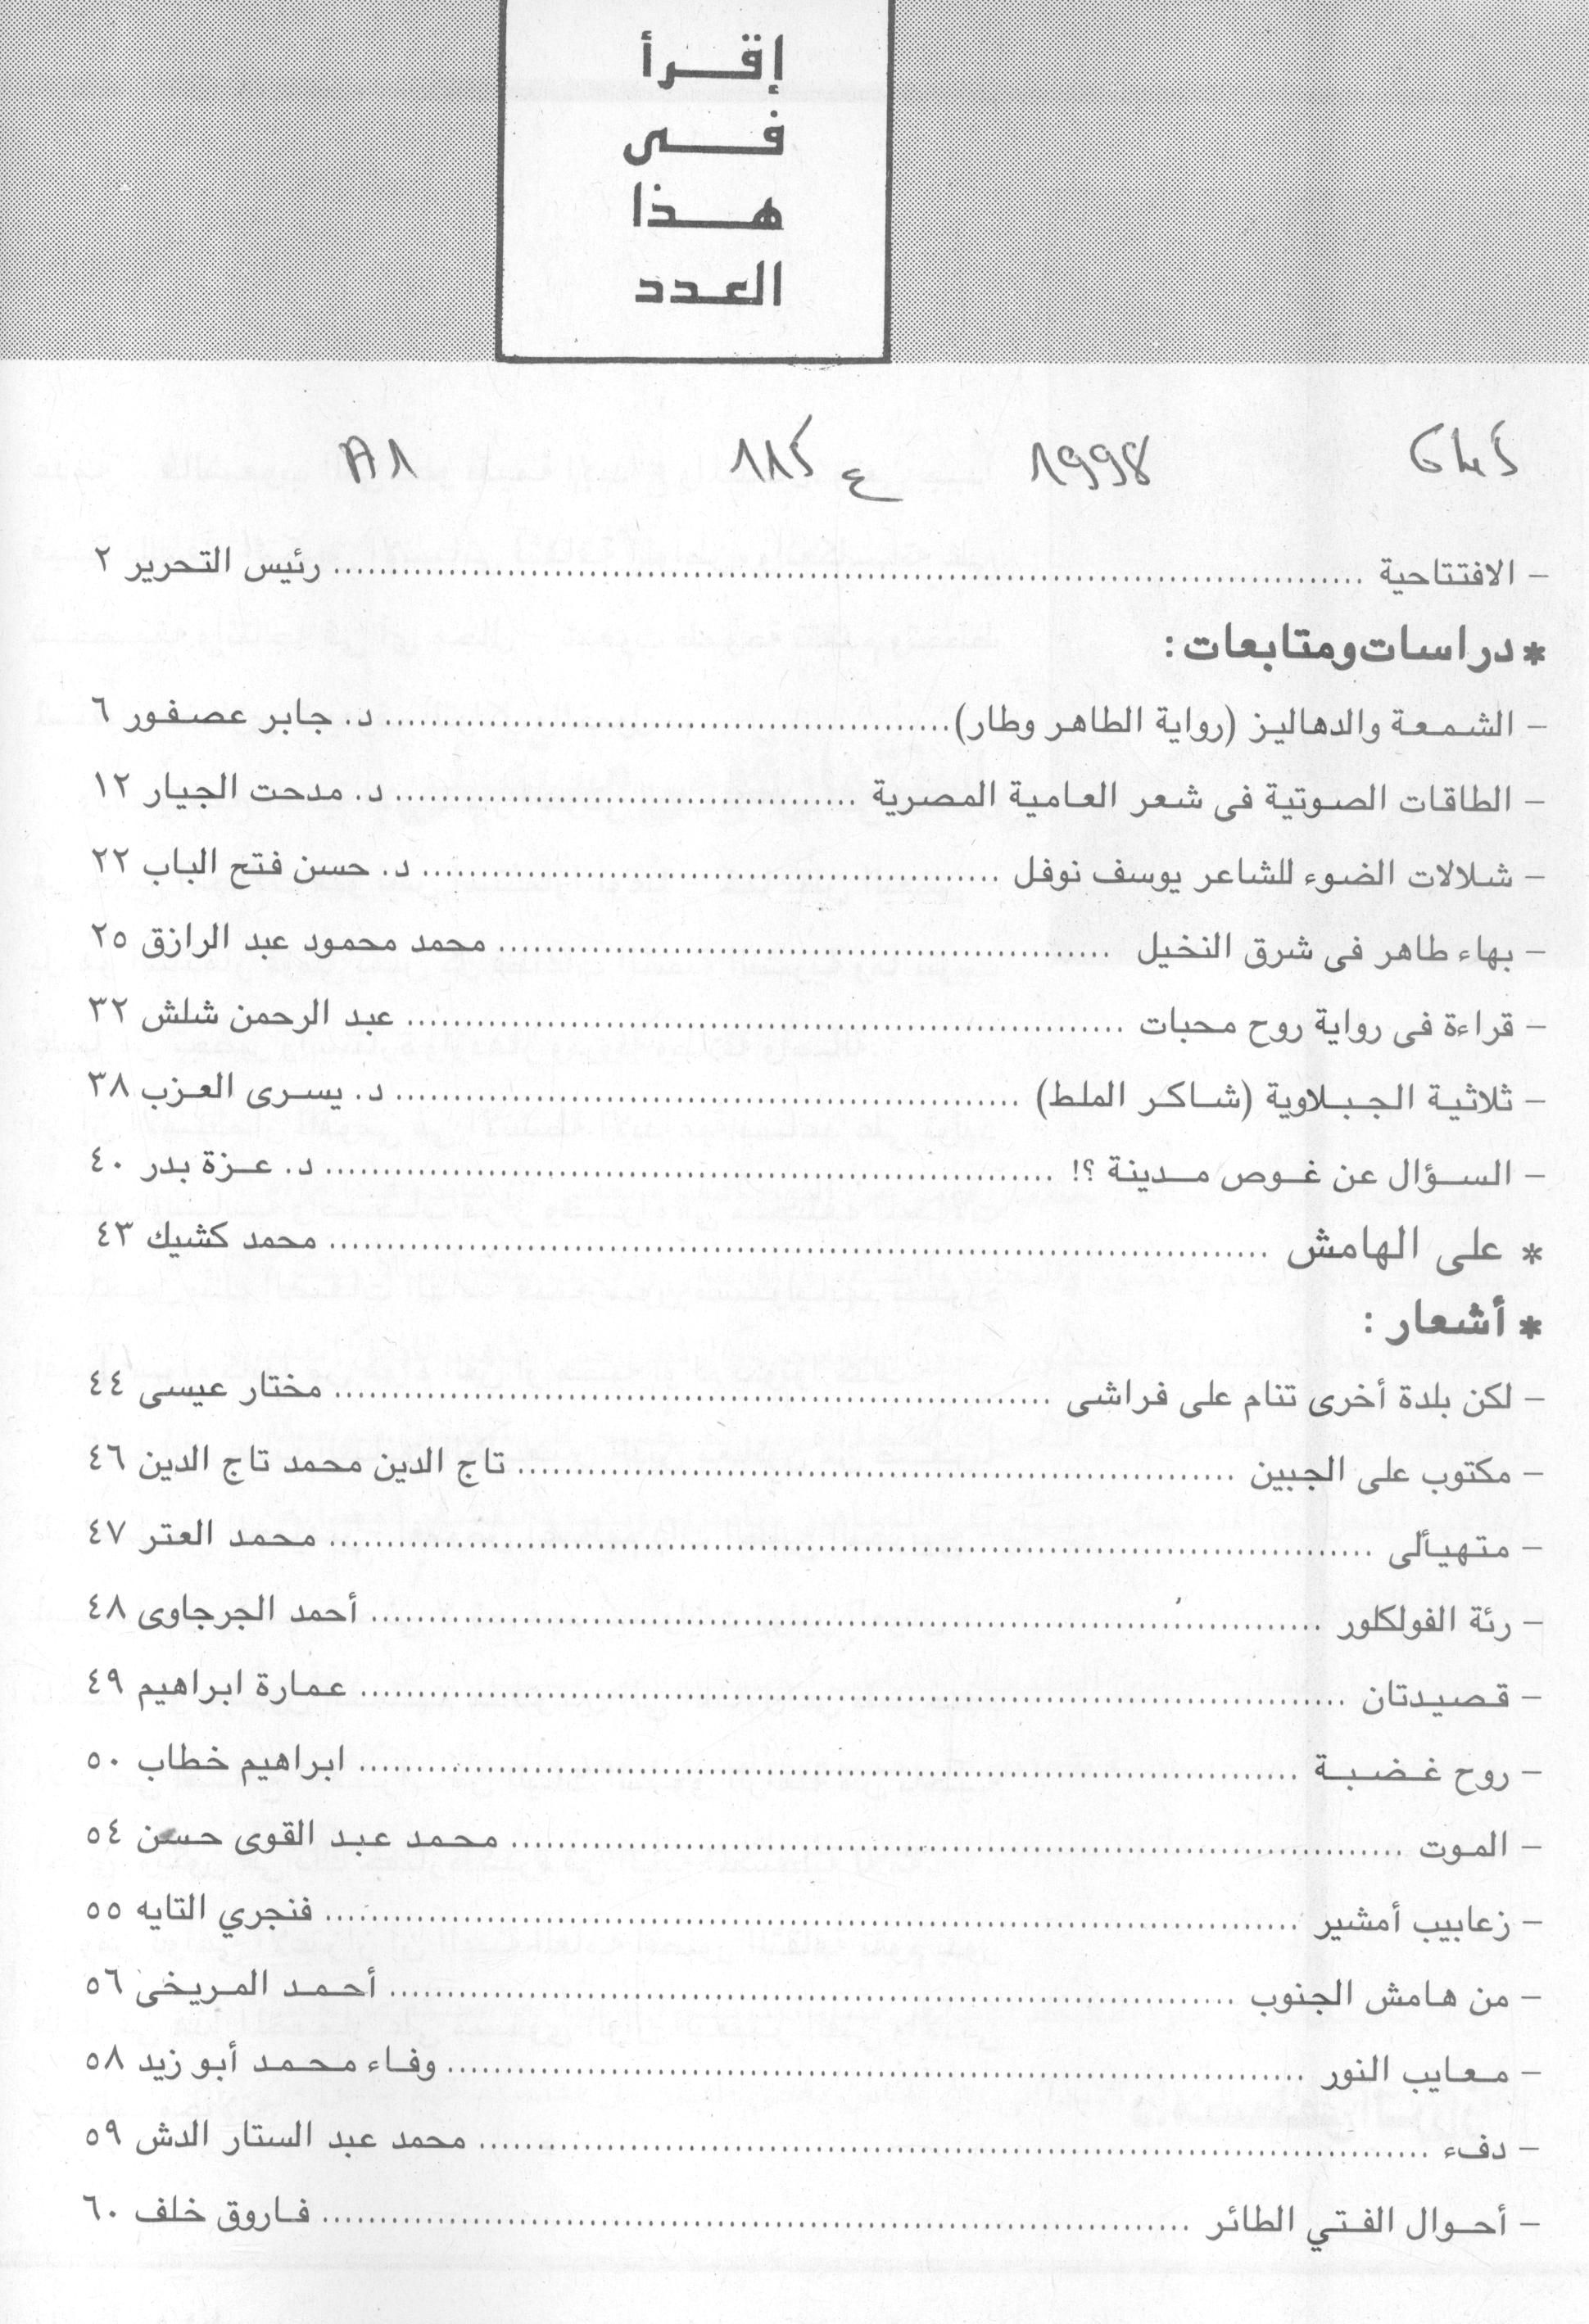 إقرأ
فى
هذا
العدد
1998 ع 115 A1
- الافتتاحية ........ رئيس التحرير ٢
* دراسات ومتابعات :
- الشمعة والدهاليز (رواية الطاهر وطار) ........ د. جابر عصفور ٦
- الطاقات الصوتية فى شعر العامية المصرية ........ د. مدحت الجيار ١٢
- شلالات الضوء للشاعر يوسف نوفل ........ د. حسن فتح الباب ٢٢
- بهاء طاهر فى شرق النخيل ........ محمد محمود عبد الرازق ٢٥
- قراءة فى رواية روح محبات ........ عبد الرحمن شلش ٣٢
- ثلاثية الجبلاوية (شاكر الملط) ........ د. يسرى العزب ٣٨
- السؤال عن غوص مدينة ؟! ........ د. عزة بدر ٤٠
* على الهامش ........ محمد كشيك ٤٣
* أشعار :
- لكن بلدة أخرى تنام على فراشى ........ مختار عيسى ٤٤
- مكتوب على الجبين ........ تاج الدين محمد تاج الدين ٤٦
- متهيألى ........ محمد العتر ٤٧
- رئة الفولكلور ........ أحمد الجرجاوى ٤٨
- قصيدتان ........ عمارة ابراهيم ٤٩
- روح غضبة ........ ابراهيم خطاب ٥٠
- الموت ........ محمد عبد القوى حسن ٥٤
- زعابيب أمشير ........ فنجري التايه ٥٥
- من هامش الجنوب ........ أحمد المريخى ٥٦
- معايب النور ........ وفاء محمد أبو زيد ٥٨
- دفء ........ محمد عبد الستار الدش ٥٩
- أحوال الفتي الطائر ........ فاروق خلف ٦٠